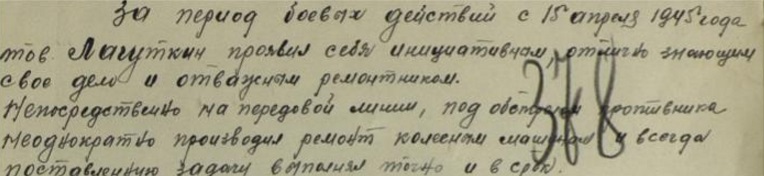 За период боевых действий с 15 апреля 1945 года
тов. Лагуткин проявил себя инициативным, отлично знающим
свое дело и отважным ремонтником.
Непосредственно на передовой линии, под обстрелом противника
неоднократно производил ремонт колесным машинам и всегда
поставленную задачу выполнял точно и в срок.
378